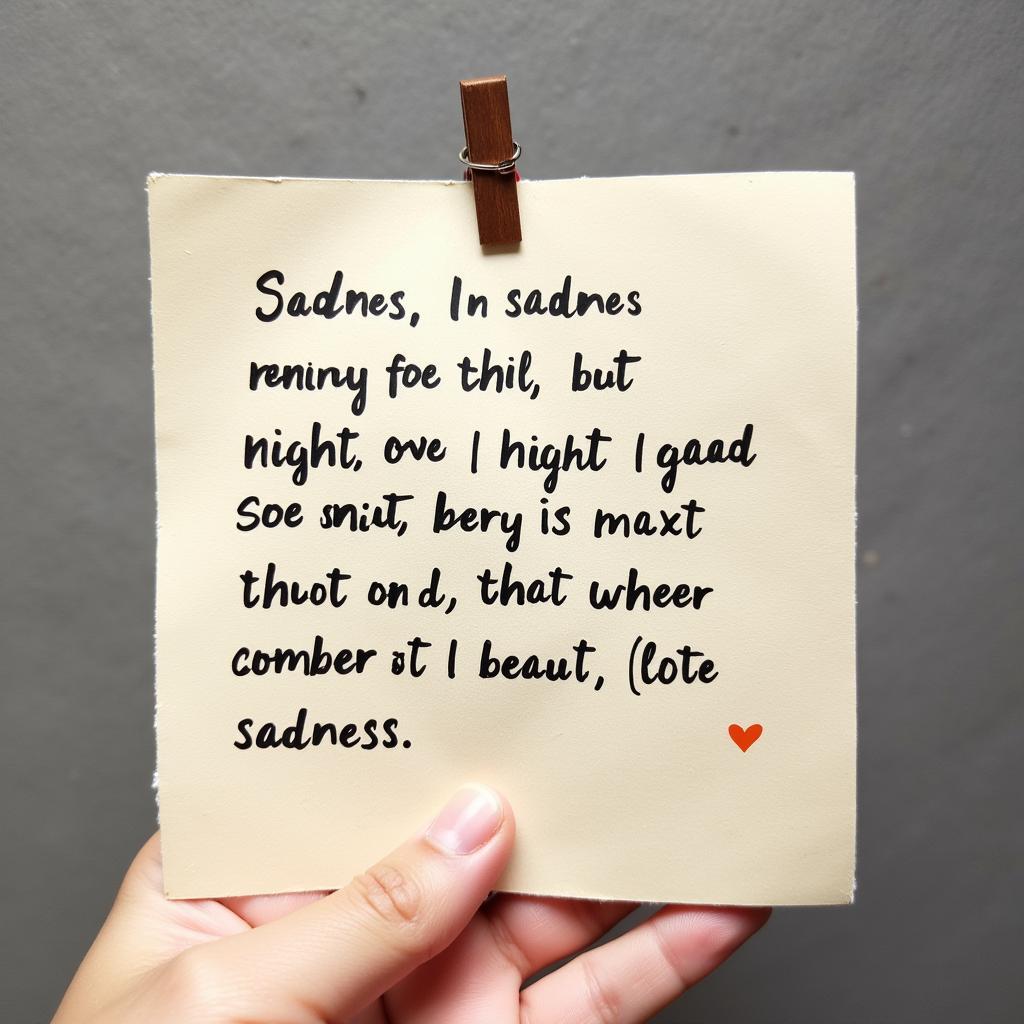 Sadnes, In sadnes
reniny foe thil, but
night, ove I hight I gaad
Soe sniut, bery is maxt
thuot on d, that wheer
comber ot I beaut, (lote
sadness.